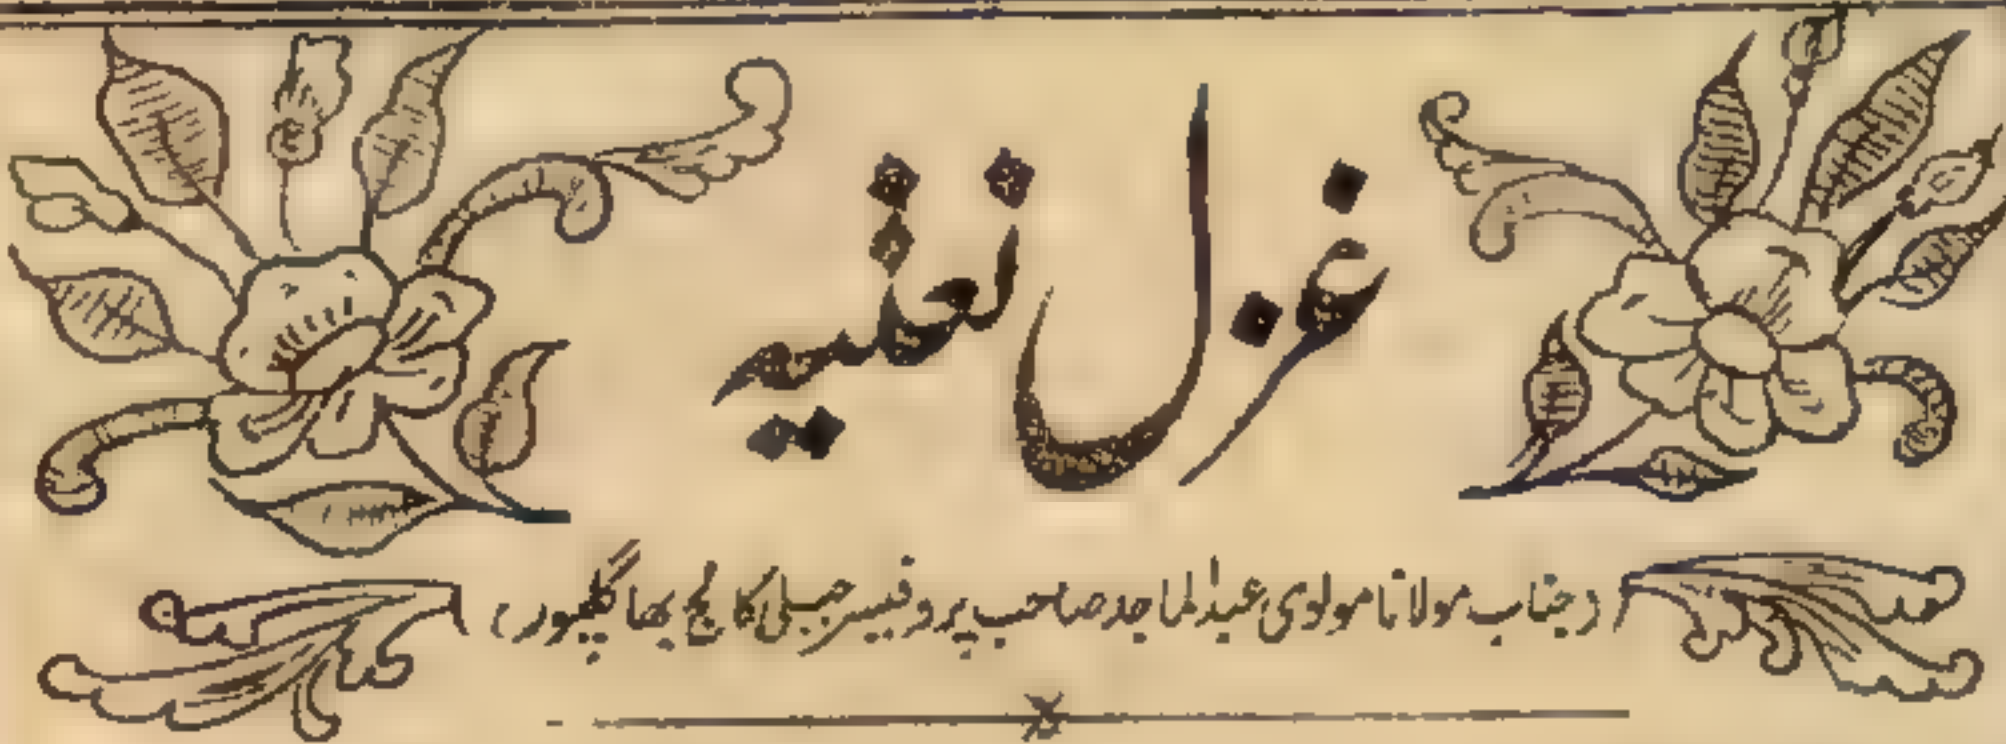 غزل نعتیہ
(جناب مولانا مولوی عبدالماجد صاحب پروفیسر جبلی کالج بھاگلپور)